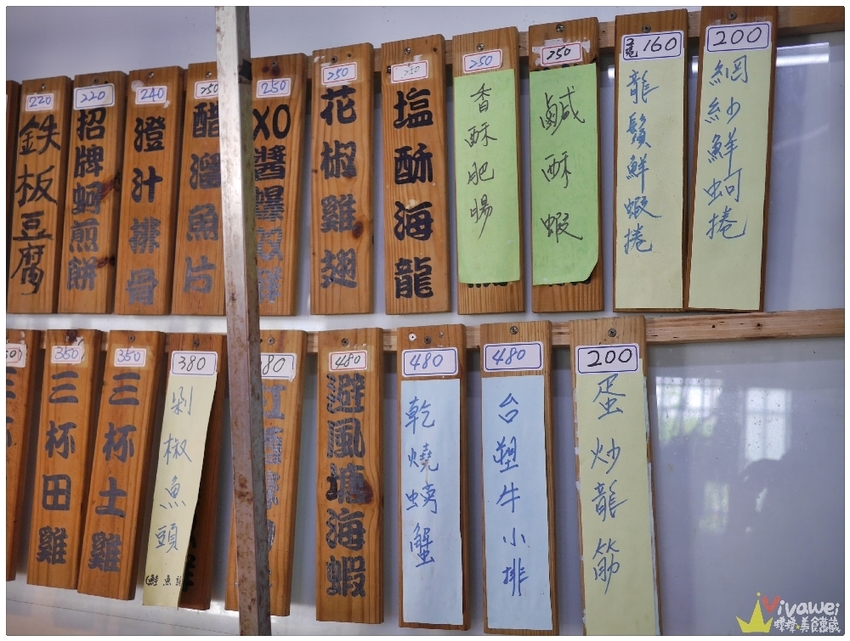 220
鉄板豆腐
220
招牌蚵煎餅
240
澄汁排骨
250
醋溜魚片
250
XO醬爆
250
花椒雞翅
250
塩酥海龍
250
香酥肥腸
250
鹹酥蝦
160
龍鬚鮮蝦捲
200
網紗鮮蚵捲
350
三杯田雞
350
三杯土雞
380
剁椒魚頭
480
避風塘海蝦
480
乾燒螃蟹
480
台塑牛小排
200
蛋炒龍筋
Vivawei